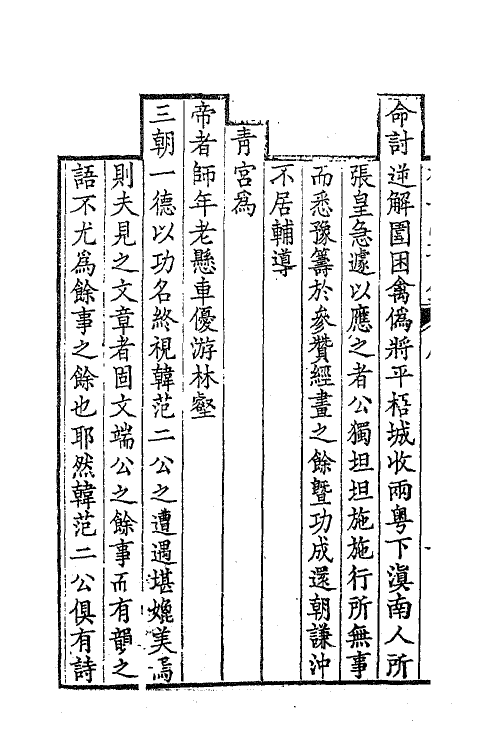 命討逆解圍困禽偽將平梧城收兩粤下滇南人所
張皇急遽以應之者公獨坦坦施施行所無事
而悉豫籌於參贊經畫之餘曁功成還朝謙沖
不居輔導
青宮為
帝者師年老懸車優游林壑
三朝一德以功名終視韓范二公之遭遇堪媲美焉
則夫見之文章者固文端公之餘事而有韻之
語不尤為餘事之餘也耶然韓范二公俱有詩